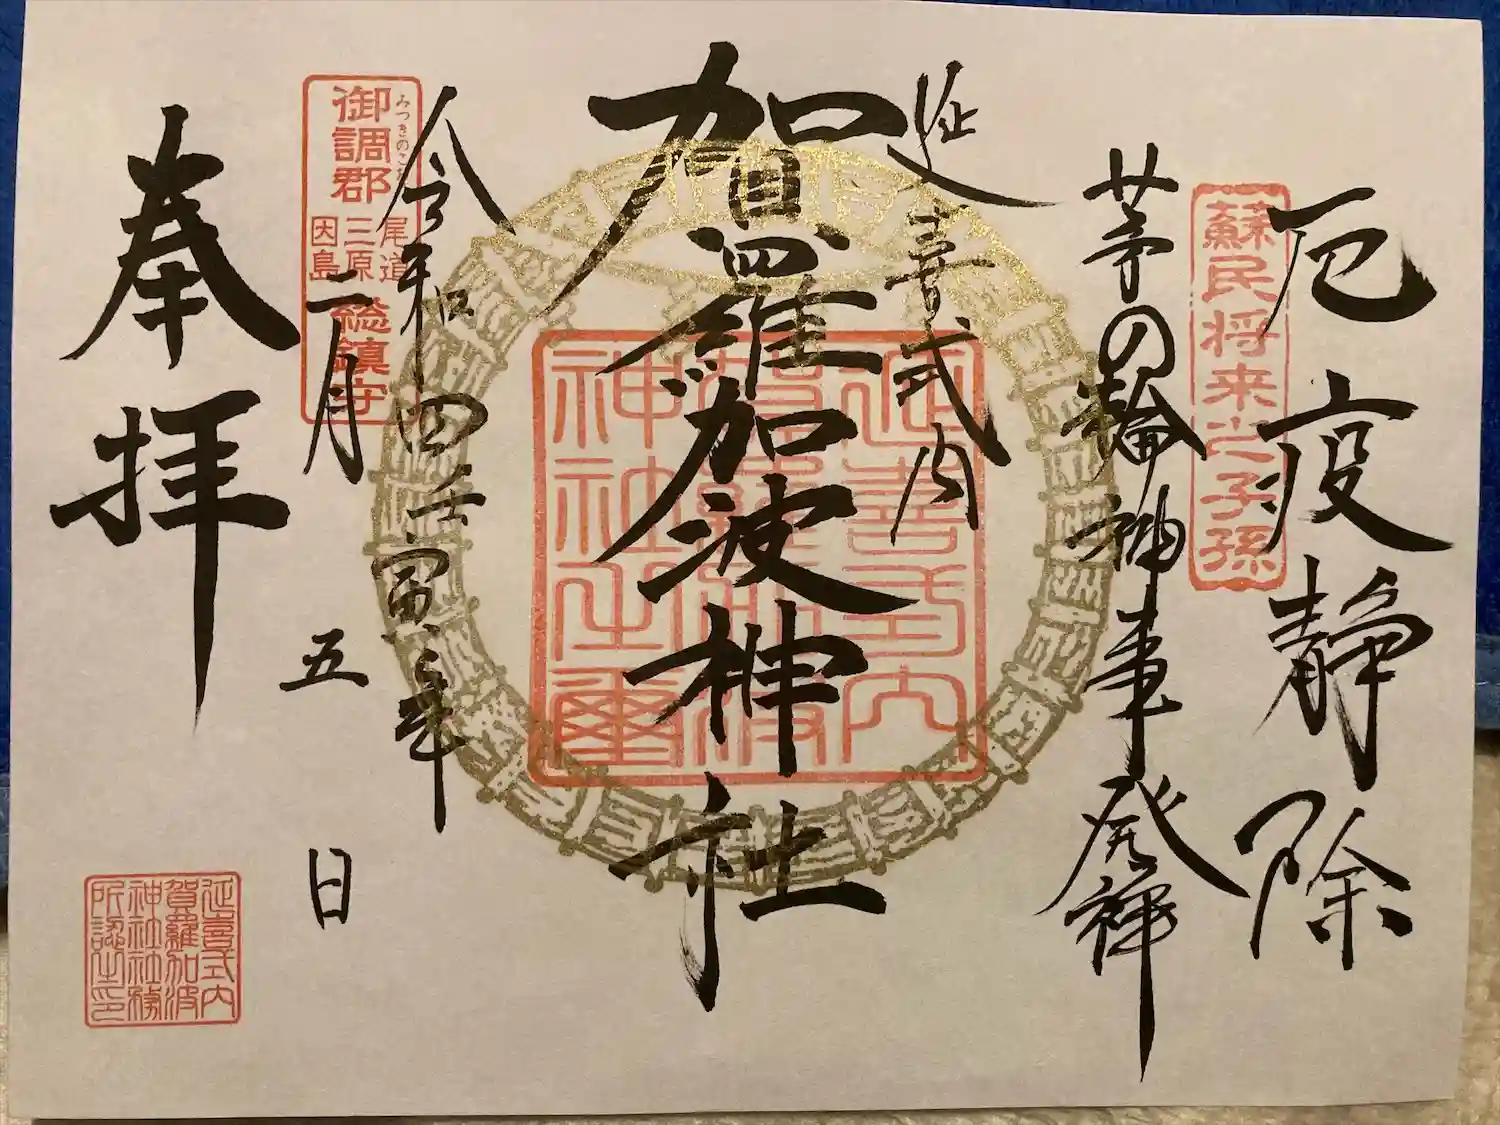 厄疫静除
蘇民将来之子孫
茅の輪神事発祥
延喜式内
賀羅加波神社
延喜式内
賀羅加波
神社之璽
令和四壬寅年
二月五日
みつきのこ
御調郡
尾道
三原
因島
総鎮守
奉拝
延喜式内
賀羅加波
神社社務
所認之印